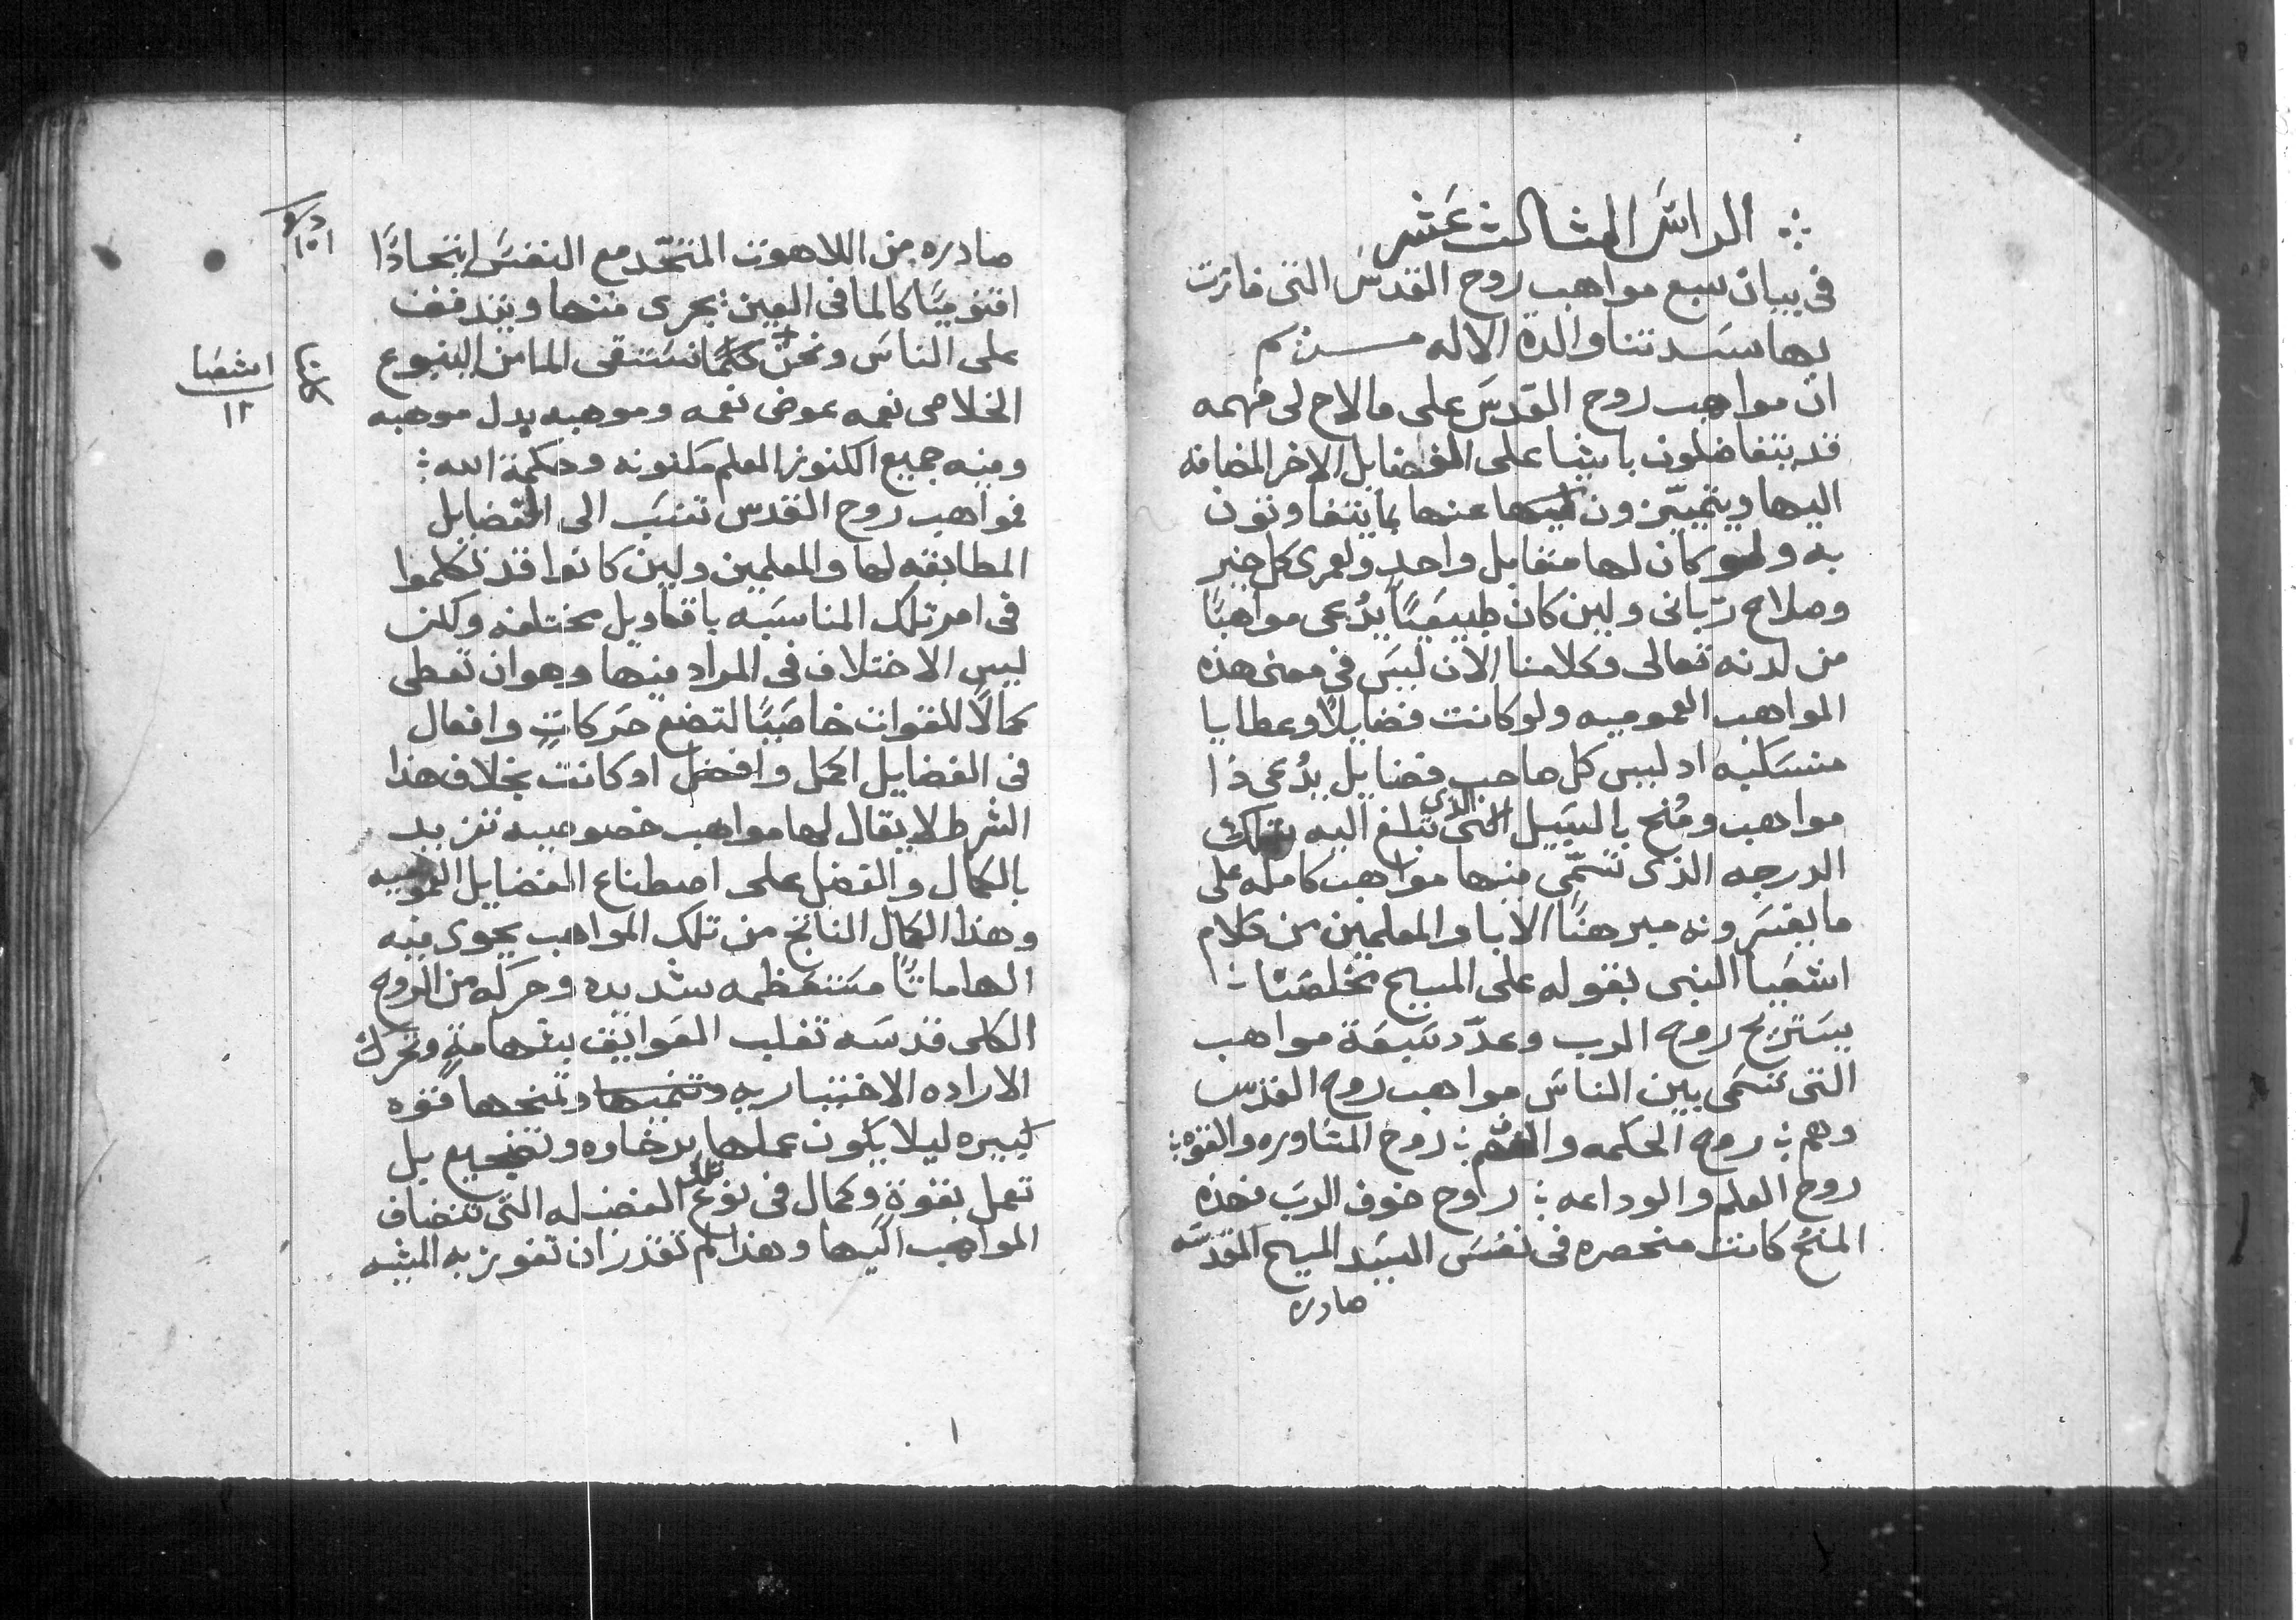 الراس الثالث عشر
في بيان سبع مواهب روح القدس التي فازت
بها ستنا والدة الاله مريم
ان مواهب روح القدس على ما لاح لى فهمه
قد يتفاضلون باشيا على الفضايل الاخر المضافه
اليها ويتميّزون عنها بما يتفاوتون
به ولو كان لها متقابل واحد ولعمرى كل خير
وصلاح ربّاني ولين كان طبيعيًا يدُعى مواهبًا
من لدنه تعالى وكلامنا الان ليس في معنى هذه
المواهب العموميه ولو كانت فضايلاً وعطايا
منسكبه اد ليس كل صاحب فضايل يدُعى ذا
مواهب ومُنح بالسبيل الذي تبلغ اليه تلك
الدرجه الذى تسمّى منها مواهب كامله على
ما يفسرونه ميرهنًا الابا والمعلمين من كلام
اشعيا النبى بقوله على المسيح مخلصنا
يستريح روح الرب وعدّد سبعة مواهب
التى تسمى بين الناس مواهب روح القدس
وهم روح الحكمه والفهم روح المشاوره والقوه
روح العلم والوداعه روح خوف الرب فهذه
المنحُ كانت منحصره في نفس السيد المسيح المقدسه
صادره
صادره من اللاهوت المتّحد مع النفس اتحادًا
اقنوميًا كالما في العين يجرى منها ويتدفق
على الناس ونحن كلمّا نستقى الما من الينبوع
الخلاصى نعمه عوض نعمه وموهبه بدل موهبه
وفيه جميع الكنوز العلم مكنونه وحكمة الله
فمواهب روح القدس تنسب الى الفضايل
المطابقه لها والمعلمين ولين كانوا قد تكلموا
في امر تلك المناسبه باقاويل مختلفه ولكن
ليس الاختلاف في المراد منها وهو ان تعطى
كمالاً للقوات خاصيًا لتضع حركاتٍ وافعال
في الفضايل اكمل وافضل اد كانت بخلاف هذا
الشرط لا يقال لها مواهب خصوصيه تزيد
بالكمال والفضل على اصطناع الفضايل العموميه
وهذا الكمال الناتج من تلك المواهب يحوى فيه
الهاماتًا مستعظمه شديده وحركه من الروح
الكلى قدسه تغلب العوايق بشهامةٍ وتحرك
الاراده الاختياريه وتمنحها قوه
كبيره ليلا يكون عملها برخاوه وتضجيع بل
تعمل بقوةٍ وكمال في نوع تلك الفضيله التى تنضاف
المواهب اليها وهذا لم تقدر ان تفوز به المثبه
اشعيا
١٢
١